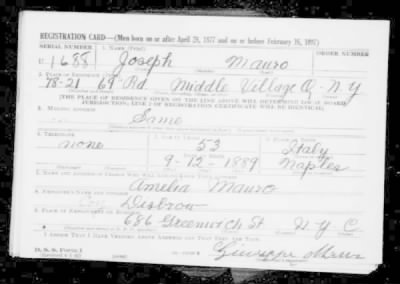 REGISTRATION CARD—(Men born on or after April 28, 1877 and on or before February 16, 1897)
SERIAL NUMBER 1. NAME (Print) ORDER NUMBER
U 1688 Joseph Mauro
2. PLACE OF RESIDENCE (Print)
78-21 69 Rd. Middle Village Q. N.Y
[THE PLACE OF RESIDENCE GIVEN ON THE LINE ABOVE WILL DETERMINE LOCAL BOARD
JURISDICTION; LINE 2 OF REGISTRATION CERTIFICATE WILL BE IDENTICAL]
3. MAILING ADDRESS
Same
4. TELEPHONE
none 53 Italy
9-12-1889 Naples
7. NAME AND ADDRESS OF PERSON WHO WILL ALWAYS KNOW YOUR ADDRESS
Amelia Mauro
8. EMPLOYER'S NAME AND ADDRESS
Disbrow
9. PLACE OF EMPLOYMENT OR BUSINESS
686 Greenwich St N Y C
I AFFIRM THAT I HAVE VERIFIED ABOVE ANSWERS AND THAT THEY ARE TRUE.
D. S. S. Form 1 Giuseppe Mauro